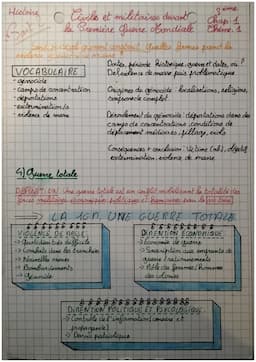 Histoire
3ème
Chap. 1
Thème. 1
Civils et militaires durant
la Première Guerre Mondiale
VOCABULAIRE
- génocide
- camps de concentration
- déportations
- extermination/s
- violence de masse
Dates, période historique, guerre et dates, où ?
Def. violence de masse puis problématique
Origines du génocide : localisations, religions,
Déroulement du génocide : déportations dans des
camps de concentration, conditions des
déplacement, militaires, pillage, exils
Conséquences + conclusion : Victime (nb), objectif
extermination, violence de masse
1) Guerre totale
DEFINITION : Une guerre totale est un conflit mobilisant la totalité des
→ LA 1GM, UNE GUERRE TOTALE
VIOLENCE DE MASSE
→ Quotidien très difficile
→ Combats dans les tranchées
→ Nouvelles armes
→ Bombardements
→ Génocide
DIMENTION ECONOMIQUE
→ Economie de guerre
→ Souscription aux emprunts de
guerre / rationnements
→ Rôle des femmes / hommes
des colonies
DIMENTION POLITIQUE ET PSYCOLOGIQUE
→ Contrôle de l'information (censure et
propagande)
→ Devoir patriotique